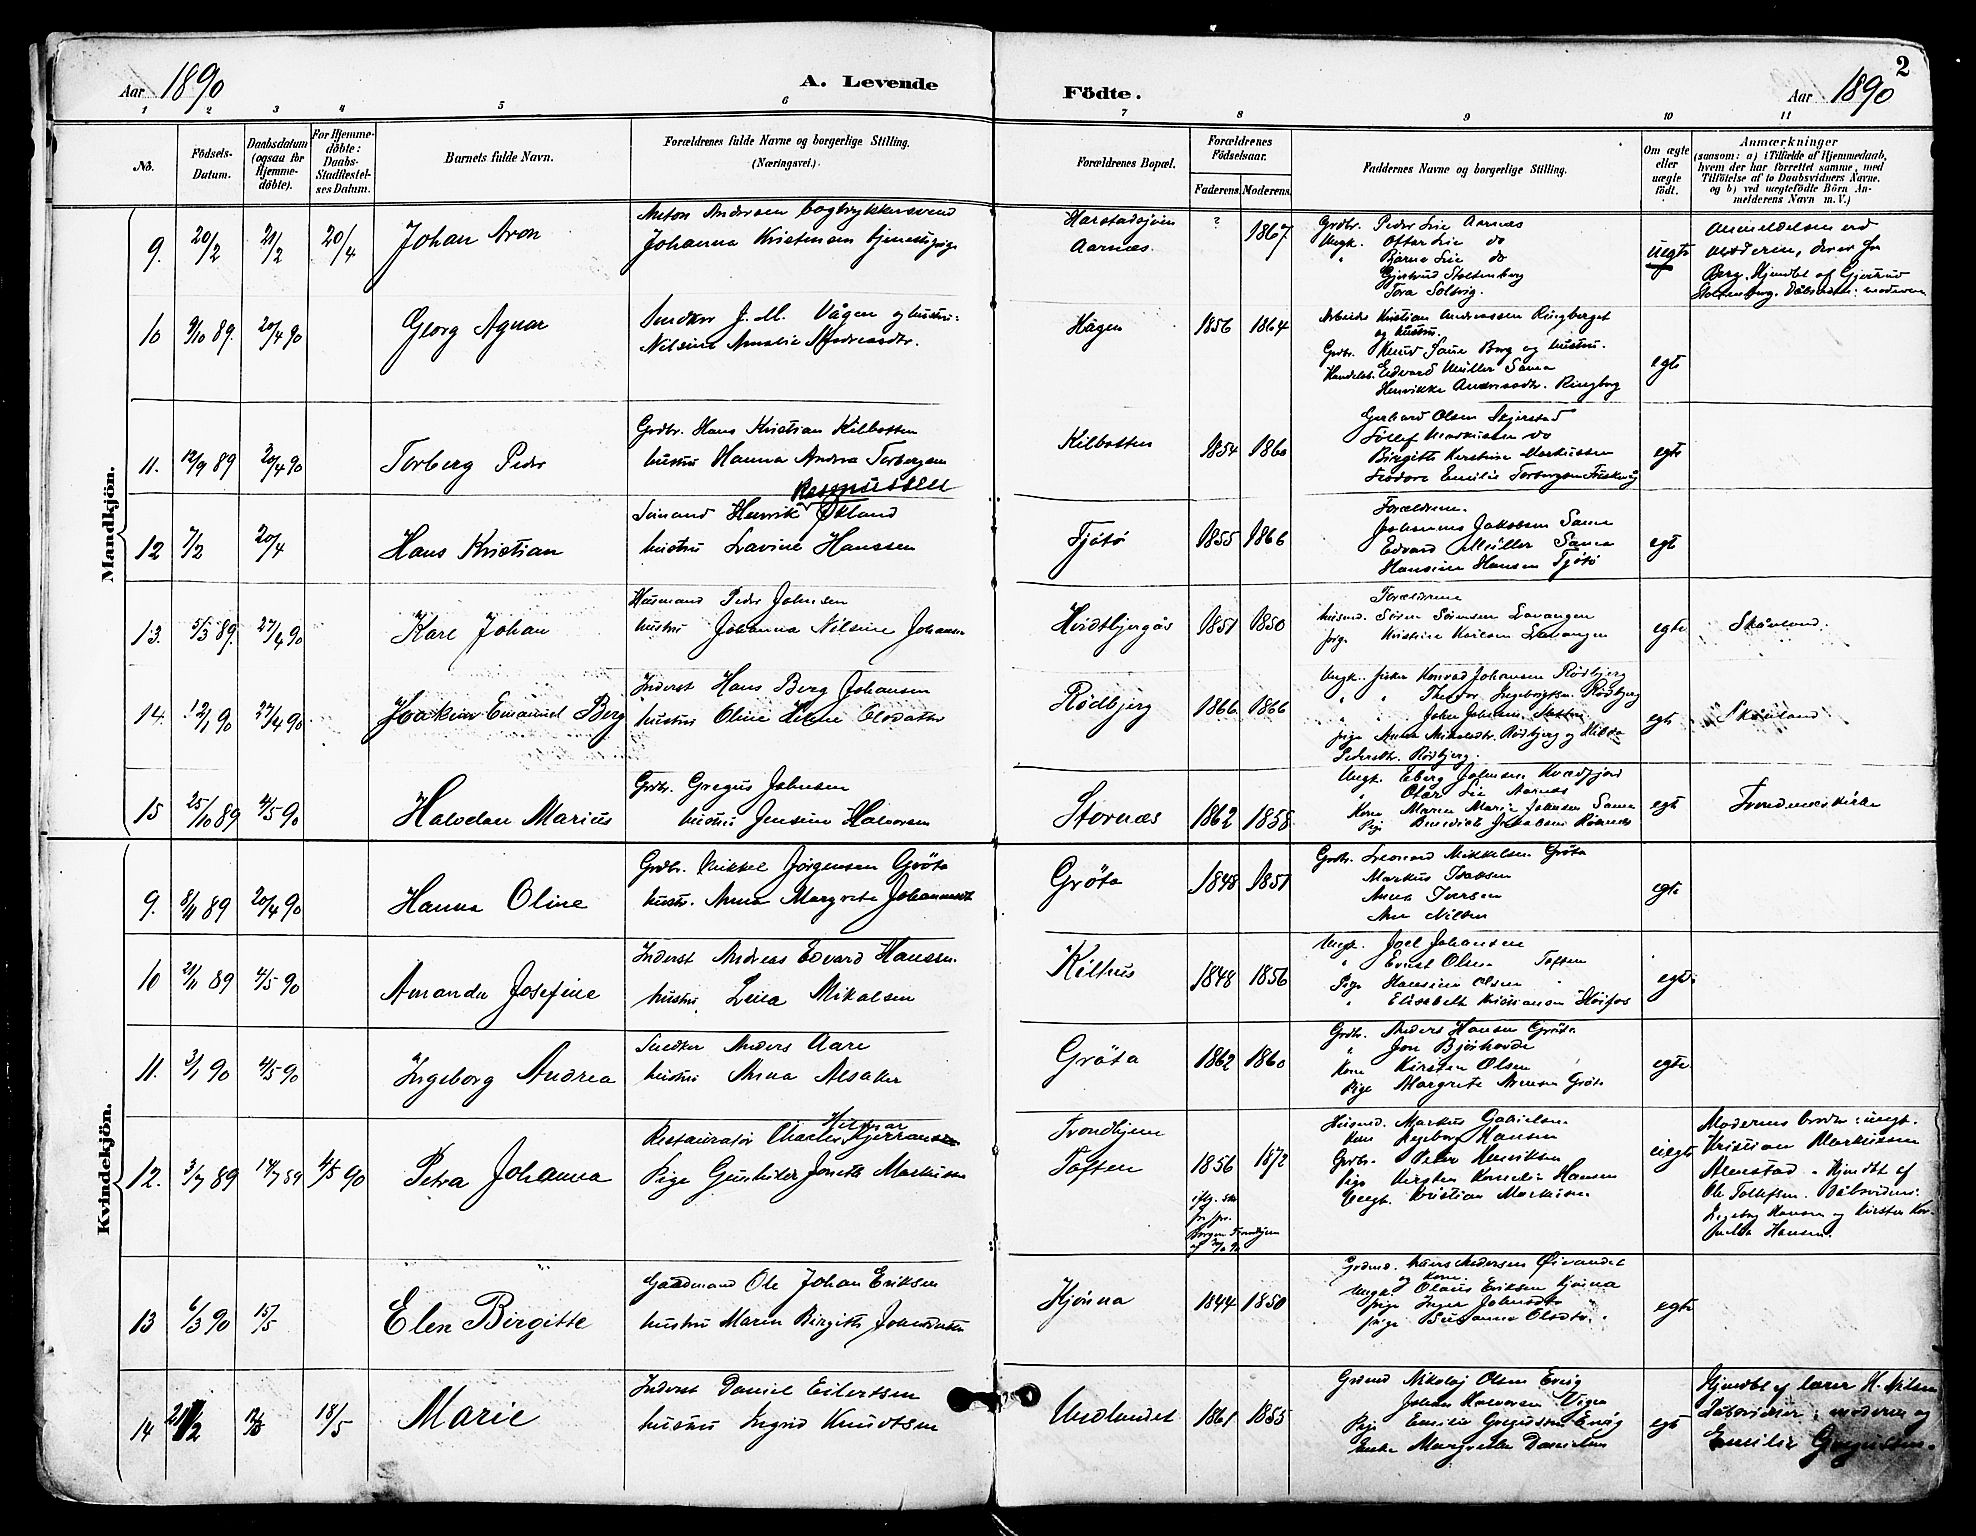 Aar 1890
A. Levende
Födte.
Aar 1890
2
1 2 3 4 5 6 7 8 9 10 11
No.
Födsels-Datum.
Daabsdatum (ogsaa for Hjemmedöbte).
For Hjemmedöbte: Daabs-Stadfestelses Datum.
Barnets fulde Navn.
Forældrenes fulde Navne og borgerlige Stilling. (Næringsvei.)
Forældrenes Bopæl.
Forældrenes Födselsaar.
Faderens. Moderens.
Faddernes Navne og borgerlige Stilling.
Om ægte eller uægte födt.
Anmærkninger
(saasom: a) i Tilfælde af Hjemmedaab, hvem der har forrettet samme, med Tilföielse af to Daabsvidners Navne, og b) ved uægtefödte Börn Anmelderens Navn m. V.)
Mandkjön.
9. 20/2 21/2 20/4 Johan Aron
Anton Andersen bogtrykkersvend
Johanna Kristensen tjenestepige
Harstadsjöen
Aarnæs.
? 1867
Grdbr. Peder Lie Aarnæs
Ungk. Ottar Lie do
" Bjarne Lie do
Gjertrud Stoltenberg
Tora Solvig.
uegte
Anmeldelsen ved
moderen, derer for
Berg. Hjemdbt af Gjertrud
Stoltenberg. Dåbsvidne: moderen
10 9/10 89. 20/4 90 Georg Agnar
Snedker J. M. Vågen og hustru:
Nilsine Amalie Andreasdtr.
Hågen
1856 1864
Arbeider Kristian Andreassen Ringberget
og hustru.
Grdbr. Knud Sama Berg og hustru.
Handelsb. Edvard Müller Sama
Henrikke Andreasdtr. Ringberg
egte
11. 12/9 89 20/4 90 Torberg Peder
Grdbr. Hans Kristian Kilbotten
hustru Hanna Andrea Torbergsen
Kilbotten
1854 1860
Gerhard Olsen Skjerstad
Tollef Markussen do
Birgitte Kirstine Markussen
Teodora Emilie Torbergsen
egte
12 7/2 20/4 Hans Kristian
Rasmussen
Sömand Henrik Økland
hustru Lavine Hanssen
Fjötö
1855 1866
Forældrene.
Johannes Jakobsen Sama
Edvard Müller Sama
Hansine Hansen Fjötö
egt
13. 5/3 89. 27/4 90 Karl Johan
Husmand Peder Johnsen
hustru Johanna Nilsine Johansen
Hvidtbjergås
1851 1850
Forældrene
husmd. Sören Sörensen Lavangen
pige Kristine Karlsen Lavangen
egte
Skånland.
14. 12/1 90 27/4 90 Joakim Emanuel Berg
Inderst Hans Berg Johansen
hustru Oline Helene Olsdatter
Rödbjerg
1866 1866
Ungk. fisker Konrad Johansen Rödbjerg
" " Theodor Ingebrigtsen Rödbjerg
" " John Johansen
pige Anna Mikalsdtr. Rödbjerg og Hilda
Pedersdtr. Rödbjerg.
egte
Skånland
15 25/10 89 4/5 90 Halvdan Marius
Grdbr. Gregus Johnsen
hustru Jensine Halvorsen
Stornæs
1862 1858
Ungk. Eberg Johnsen Kvædfjord
" Otar Lie Aarnæs
Kone Maren Marie Johnsen Sama
Pige Benedicte Jakobsen
egt
Trondenes kirke
Kvindekjön.
9. 8/11 89 20/4 90 Hanna Oline
Grdbr. Mikkel Jörgensen Gröta
hustr. Anna Margrete Johannesdt
Gröta
1848 1851
Grdbr. Leonard Mikkelsen Gröta
Markus Isaksen
Anna Iversen
Ane Nilsen
egte
10 21/11 89 4/5 90 Amanda Josefine
Inderst Andreas Edvard Hanssen
hustru Lina Mikalsen
Kilhus
1848 1856
Ungk. Joel Johansen
" Ernst Olsen Toften
Pige Hansine Olsen "
" Elisabeth Kristiansen Höifos
egte
11. 3/1 90 4/5 90 Ingeborg Andrea
Snedker Anders Aare
hustru Anna Alsaker
Gröta
1862 1860
Grdbr. Anders Hansen Gröta
" Jon Bjørhovde
Kone Kirsten Olsen
Pige Margrete Monsen Gröta
egte
12. 3/7 89 14/7 89 4/5 90 Petra Johanna
Hilmar
Restauratör Charles Kjerransen
Pige Gunhilda Jonette Markussen
Trondhjem
Toften
1856 1872
Husmd. Markus Gabrielsen
Kone Ingeborg Hansen
Grdbr. Peter Henriksen
Pige Kirsten Kornelia Hansen
Ungk. Kristian Markussen
uegte
Moderens broder: ungk.
Kristian Markussen
Almestad. Hjemdbt af
Ole Tollefsen. Dåbsvidner:
Ingeborg Hansen og Kirsten Kornelia
Hansen.
13 6/3 90 15/5 Elen Birgitte
Gaardmand Ole Johan Eriksen
hustru Maren Birgitte Johnsdatter
Kjönna
1844 1850
Grdmd. Andersen Øivandet
og Kone.
Ungk. Olaus Eriksen Kjönna
pige Inger Johnsdtr "
pige Susanna Olsdtr.
egte
14 21/2 18/5 Marie
Inderst Daniel Eilertsen
hustru Ingrid Knudtsen
Undlandet
1861 1855
Grdmd Mikolaj Olsen Evig
Johan Halvorsen Vigen
Pige Emilie Gregussen Evig
Enke Margrethe Danielsen
egt
Hjemdbt af lærer H. Nilsen
Dåbsvidner: moderen og
Emilie Gregussen.